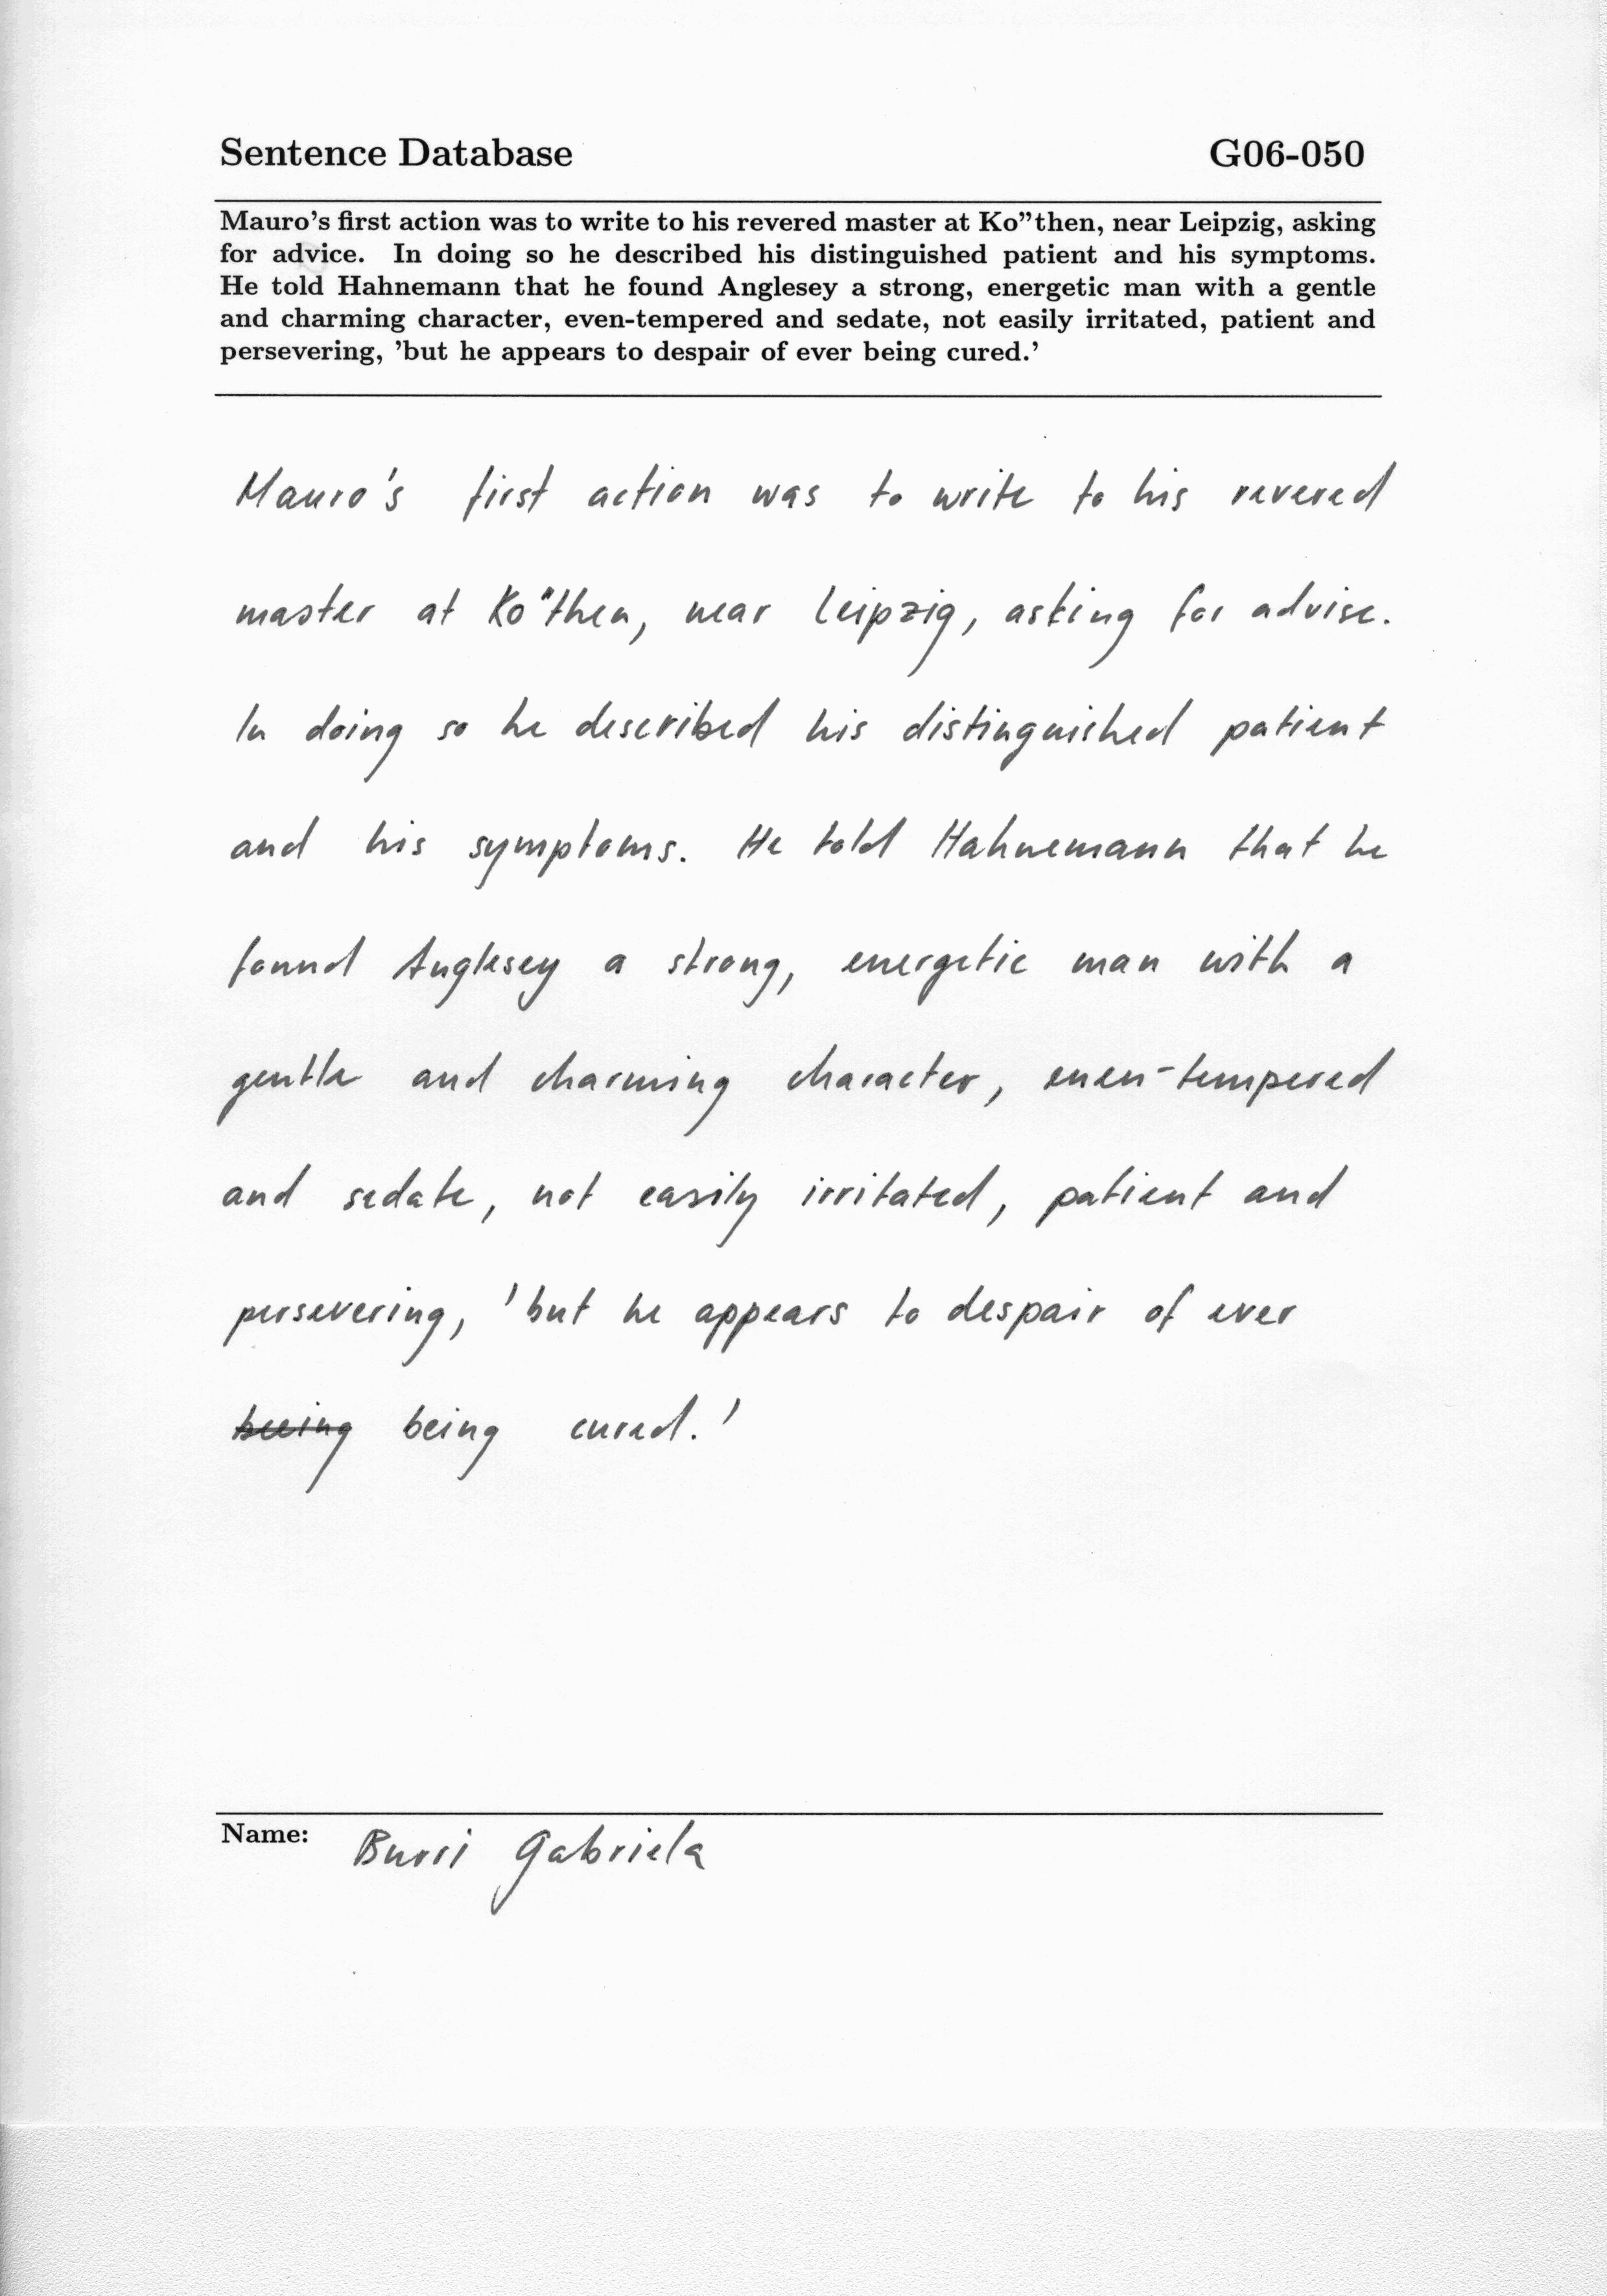 Sentence Database G06-050
Mauro's first action was to write to his revered master at Ko"then, near Leipzig, asking
for advice. In doing so he described his distinguished patient and his symptoms.
He told Hahnemann that he found Anglesey a strong, energetic man with a gentle
and charming character, even-tempered and sedate, not easily irritated, patient and
persevering, 'but he appears to despair of ever being cured.'
Mauro's first action was to write to his revered
master at Ko"then, near Leipzig, asking for advise.
In doing so he described his distinguished patient
and his symptoms. He told Hahnemann that he
found Anglesey a strong, energetic man with a
gentle and charming character, even-tempered
and sedate, not easily irritated, patient and
persevering, 'but he appears to despair of ever
being cured.'
Name: Burri Gabriela